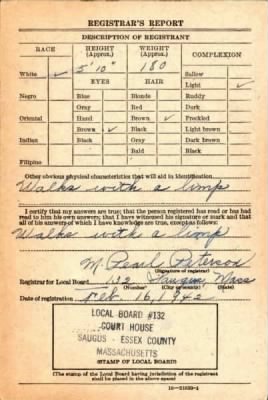 REGISTRAR'S REPORT
DESCRIPTION OF REGISTRANT
RACE HEIGHT (Approx.) WEIGHT (Approx.) COMPLEXION
White ✓ 5' 10" 180 Sallow
EYES HAIR Light ✓
Negro Blue Blonde Ruddy
Gray Red Dark
Oriental Hazel Brown ✓ Freckled
Brown ✓ Black Light brown
Indian Black Gray Dark brown
Bald Black
Filipino
Other obvious physical characteristics that will aid in identification
Walks with a limp
I certify that my answers are true; that the person registered has read or has had
read to him his own answers; that I have witnessed his signature or mark and that
all of his answers of which I have knowledge are true, except as follows:
Walks with a limp
M. Pearl Peterson
(Signature of registrar)
Registrar for Local Board 132 Saugus Mass
(Number) (City or county) (State)
Date of registration Feb. 16, 1942
LOCAL BOARD #132
COURT HOUSE
SAUGUS - ESSEX COUNTY
MASSACHUSETTS
(STAMP OF LOCAL BOARD)
(The stamp of the Local Board having jurisdiction of the registrant
shall be placed in the above space)